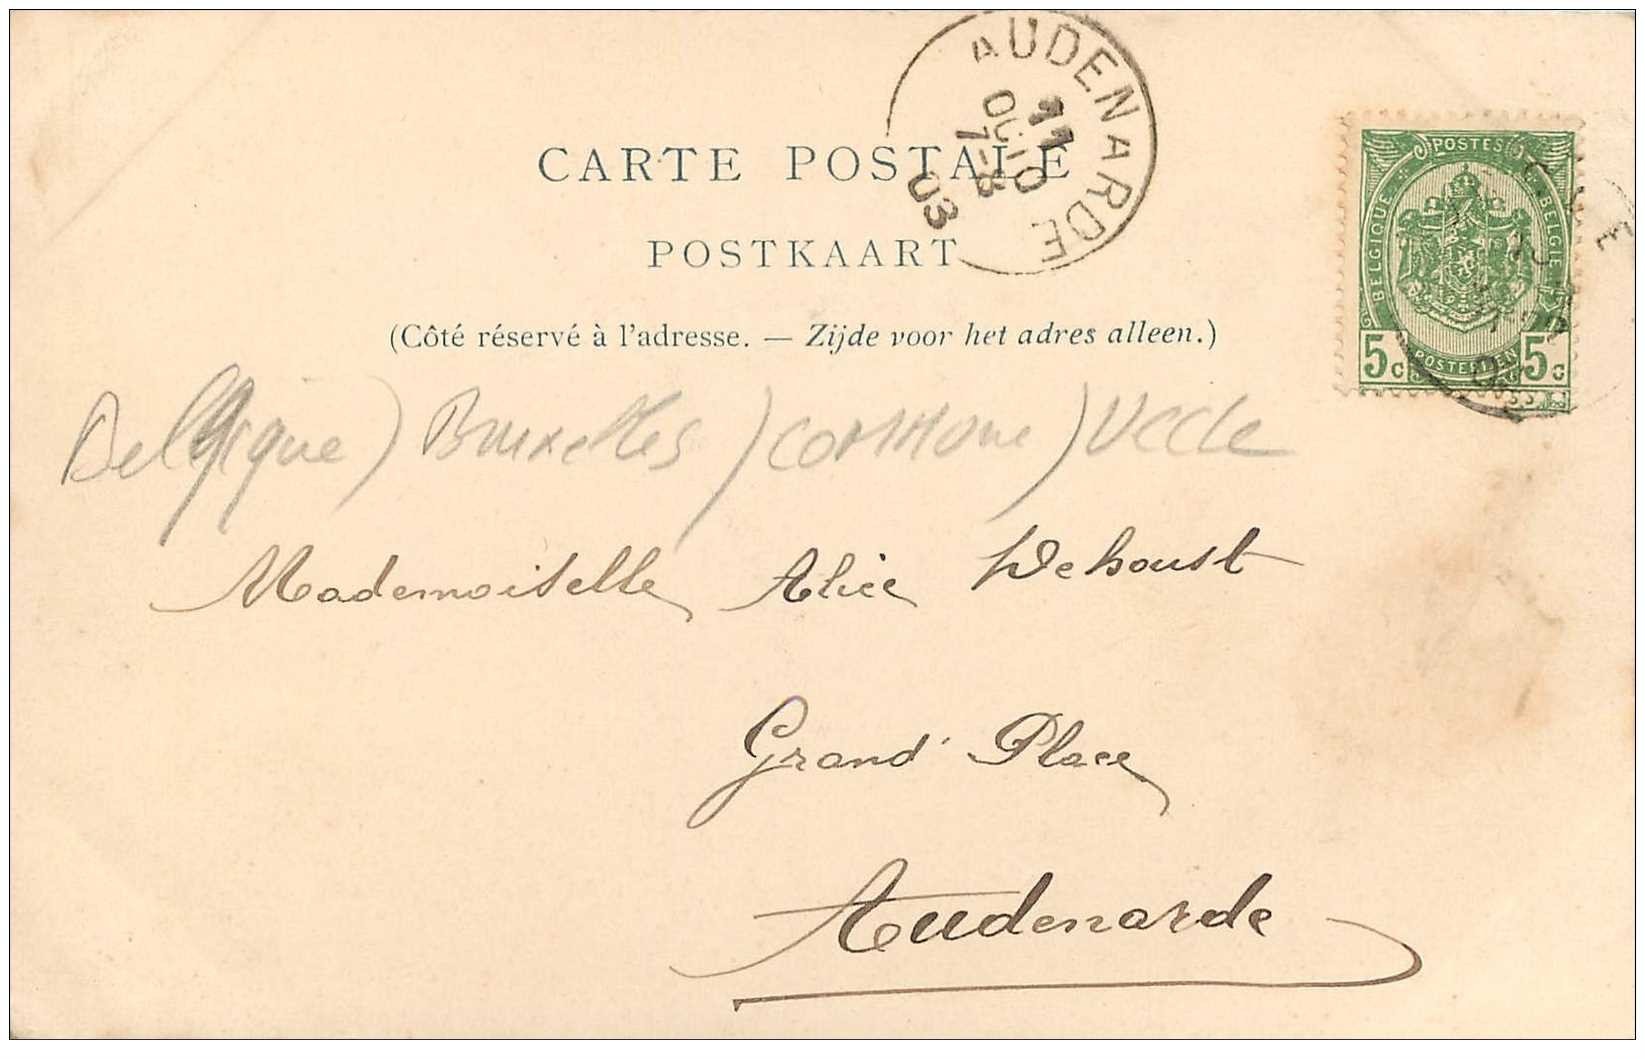 AUDENARDE
11
OCTO
7-8
03
CARTE POSTALE
POSTKAART
(Côté réservé à l'adresse. — Zijde voor het adres alleen.)
POSTES
BELGIQUE BELGIE
POSTERIJEN
5c 5c
Belgique) Bruxelles) commune) Uccle
Mademoiselle Alice Dehoust
Grand' Place
Audenarde